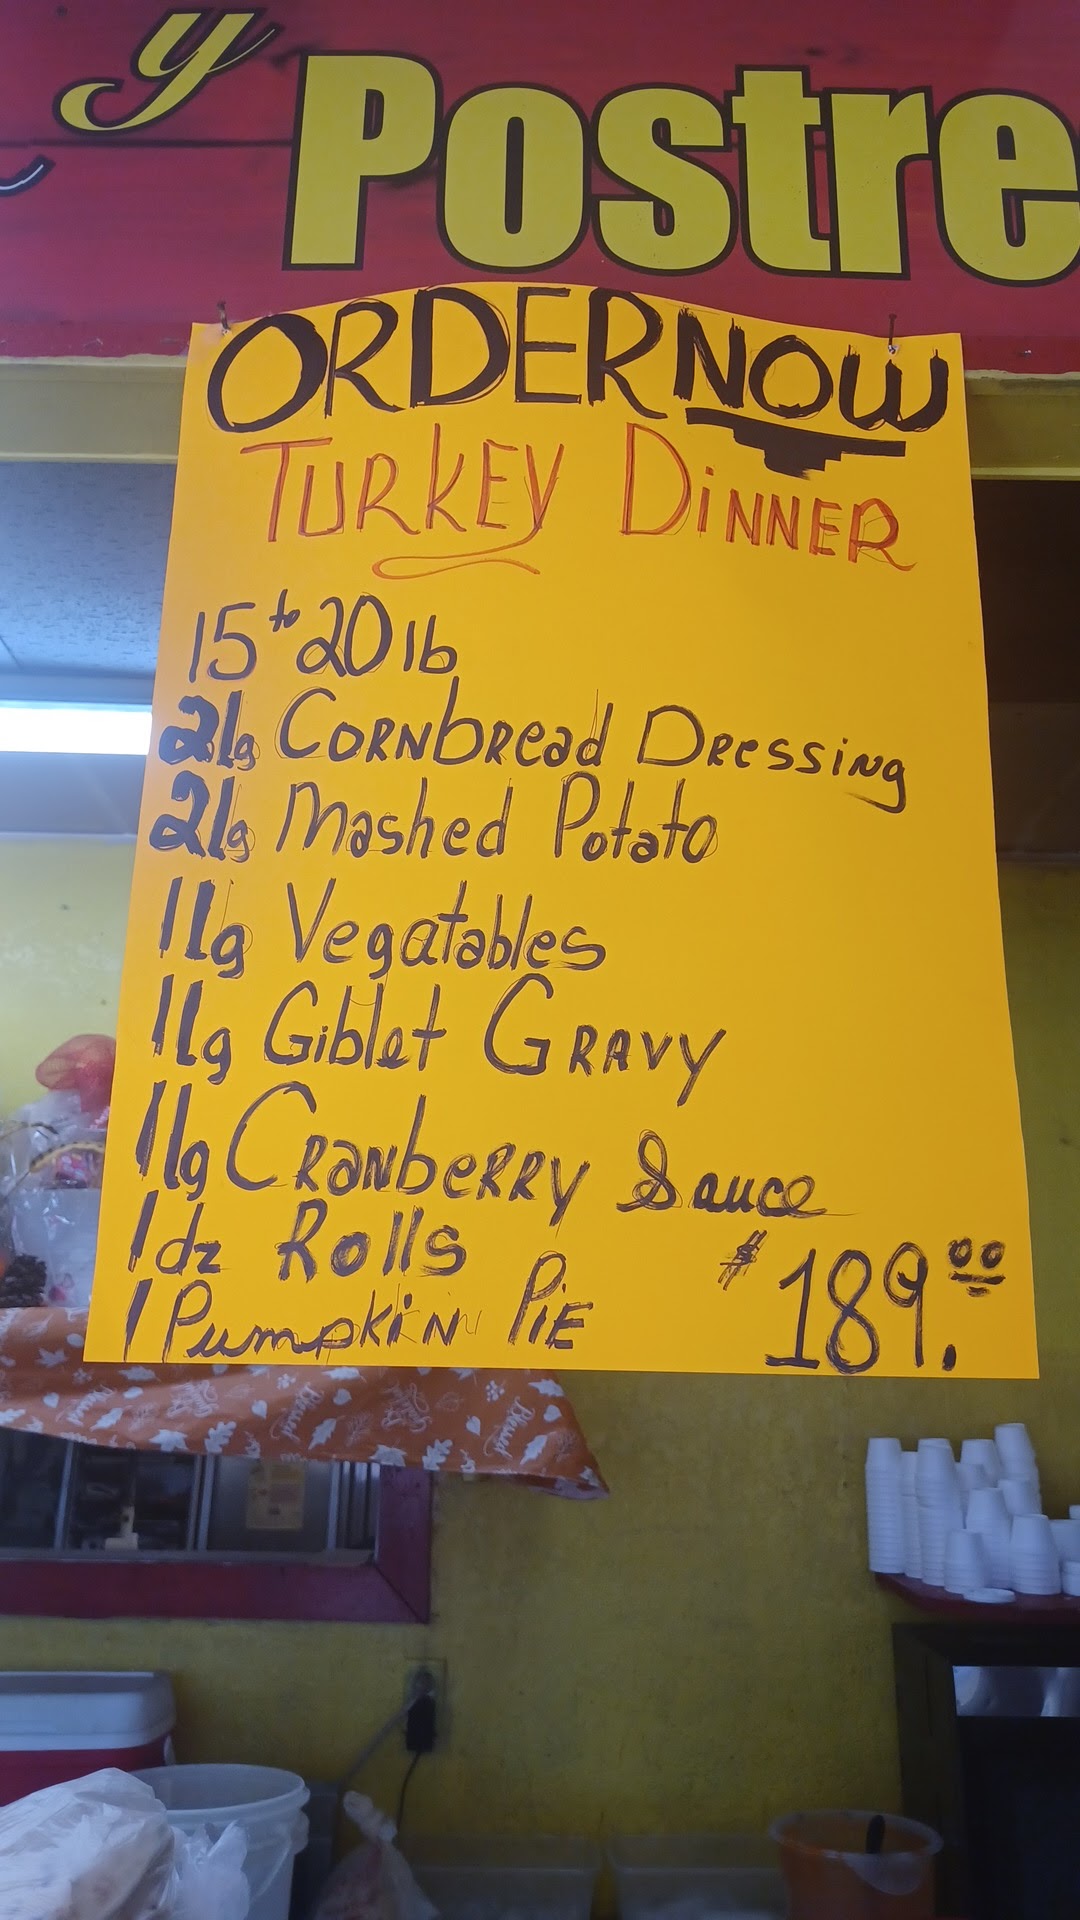 y Postre
ORDER NOW
TURKEY DiNNER
15 to 20 lb
2 lg CORNbRead DRessiNg
2 lg Mashed Potato
1 lg Vegatables
1 lg Giblet GRAVY
1 lg CRANbeRRY Sauce
1 dz Rolls
1 PumpkiN PiE
$189.00